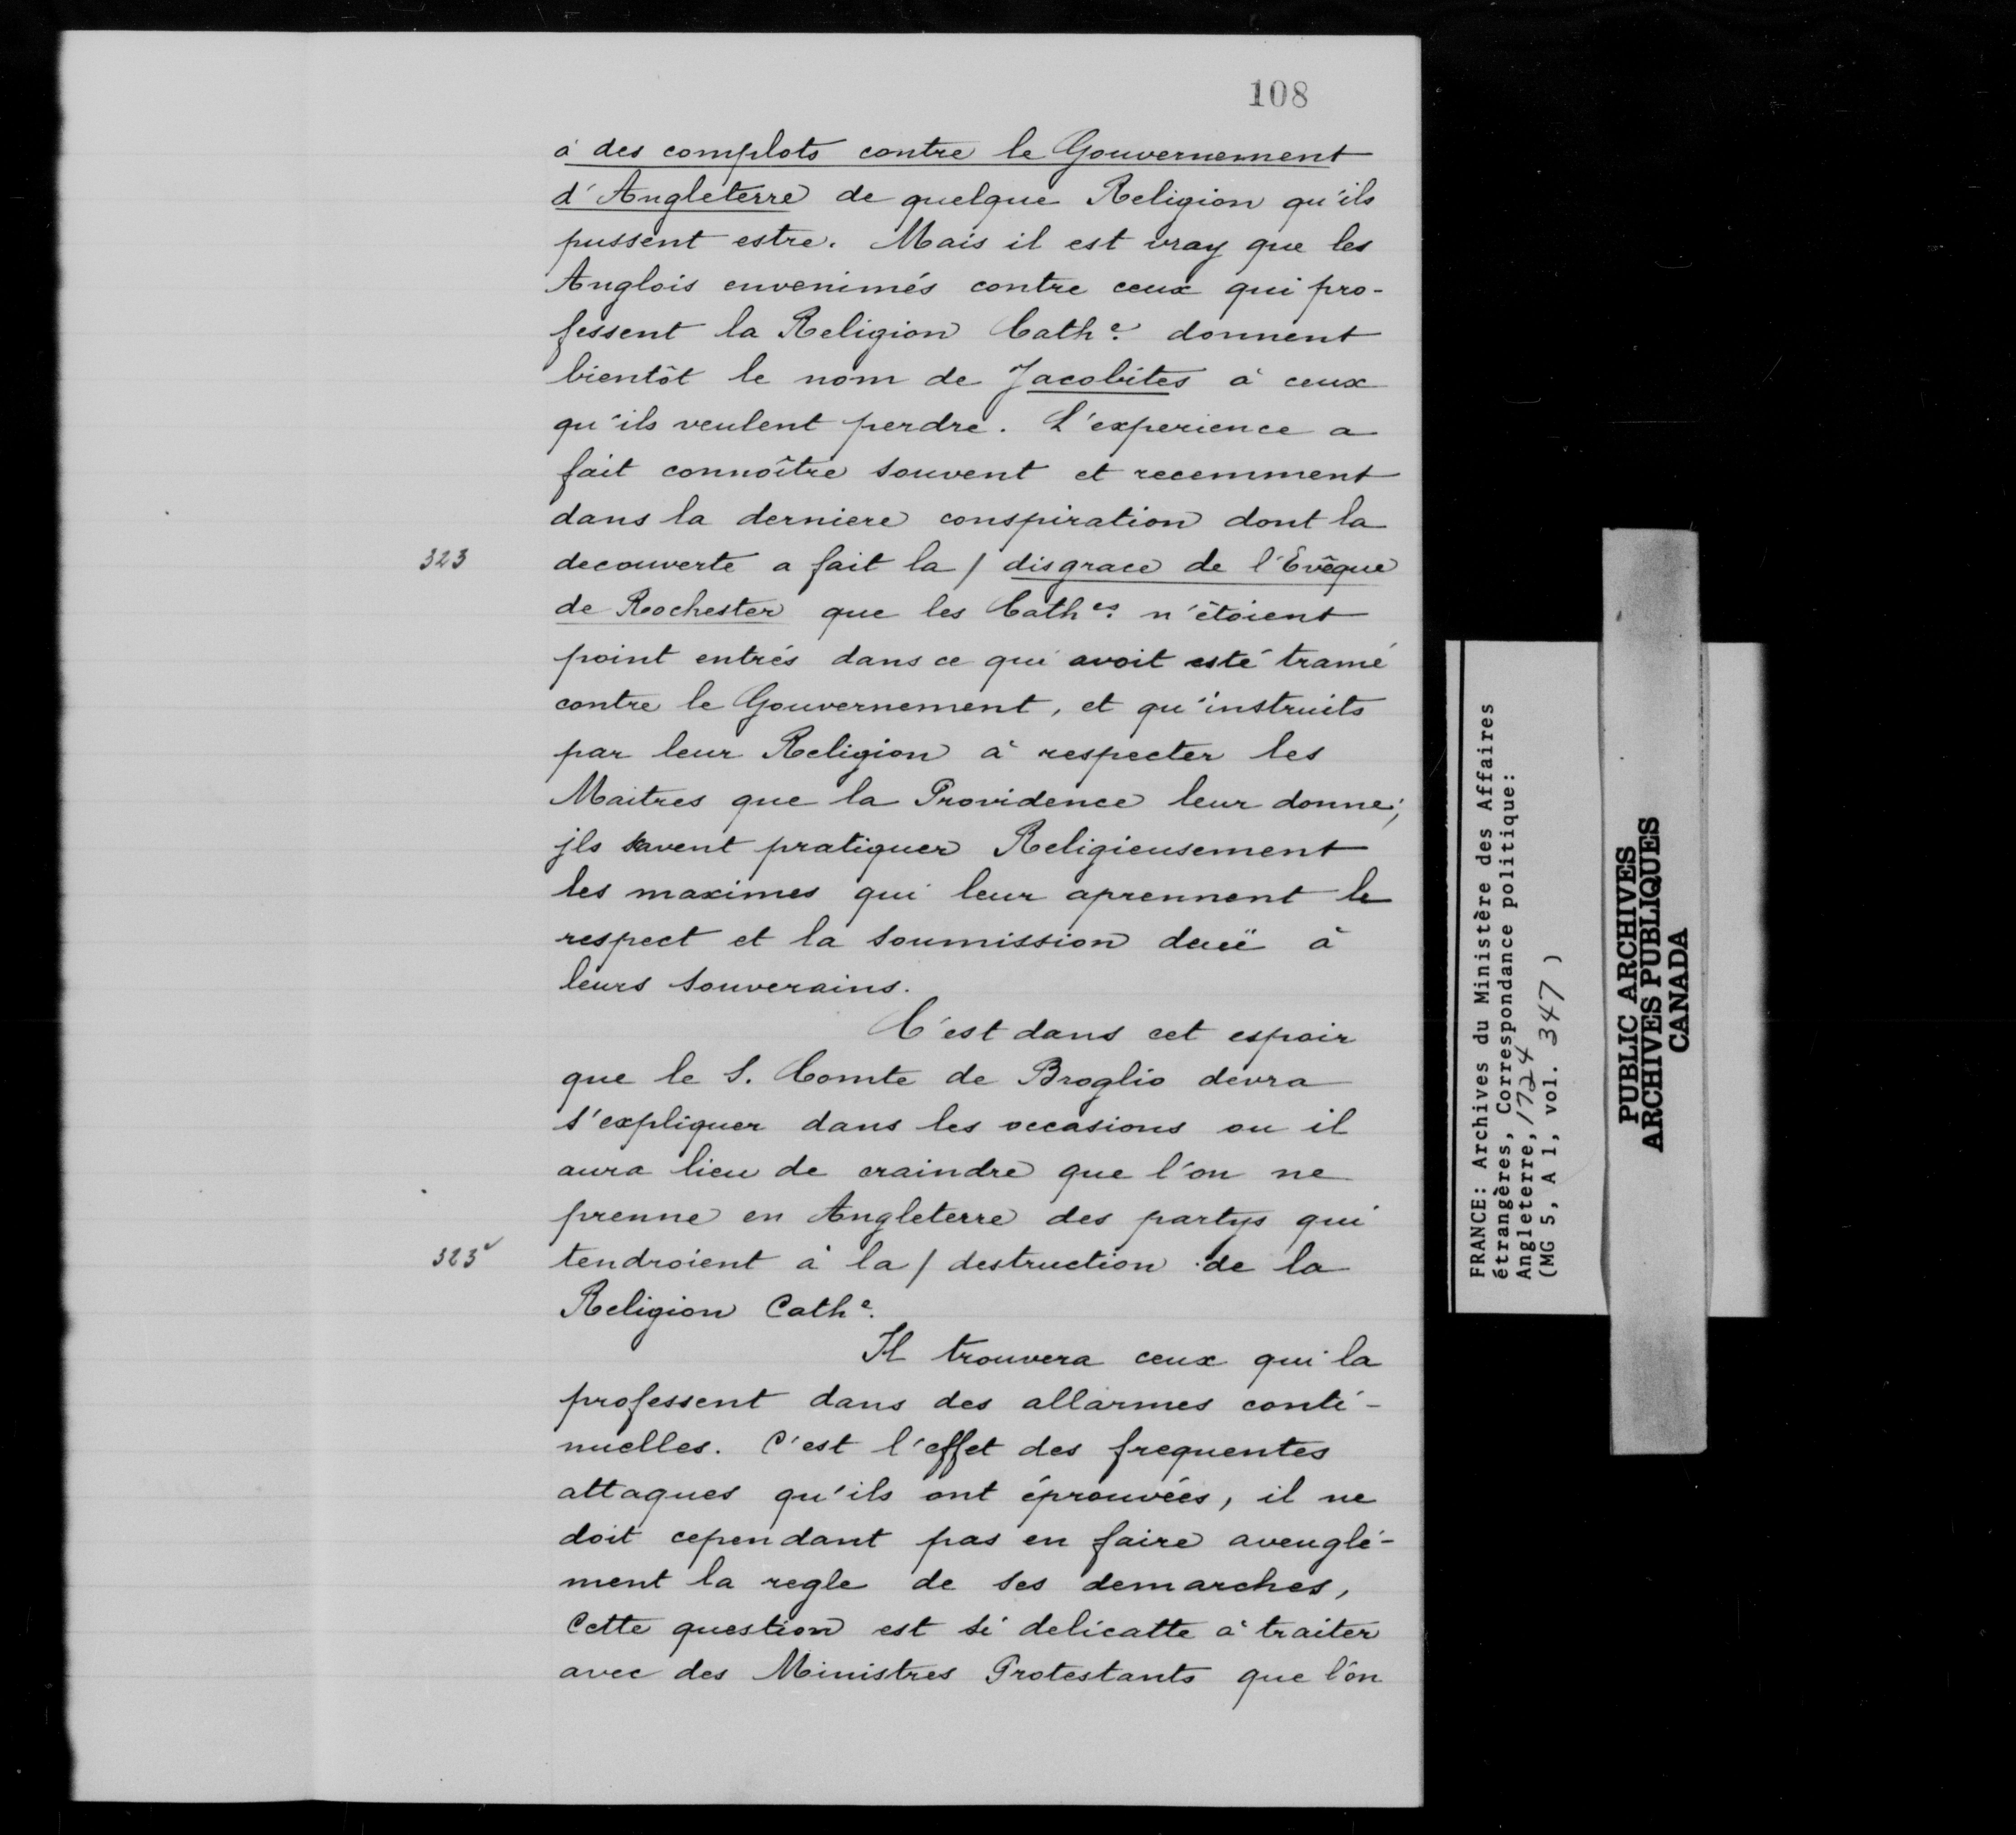 108
à des complots contre le Gouvernement
d'Angleterre de quelque Religion qu'ils
pussent estre. Mais il est vray que les
Anglois envenimés contre ceux qui pro-
fessent la Religion Cath.e donnent
bientôt le nom de Jacobites à ceux
qu'ils veulent perdre. L'experience a
fait connoître souvent et recemment
dans la derniere conspiration dont la
323 decouverte a fait la / disgrace de l'Evêque
de Rochester que les Cath.es n'êtoient
point entrés dans ce qui avoit esté tramé
contre le Gouvernement, et qu'instruits
par leur Religion à respecter les
Maitres que la Providence leur donne;
jls savent pratiquer Religieusement
les maximes qui leur aprennent le
respect et la soumission deuë à
leurs souverains.
C'est dans cet espoir
que le S. Comte de Broglio devra
s'expliquer dans les occasions ou il
aura lieu de craindre que l'on ne
prenne en Angleterre des partys qui
323v tendroient à la / destruction de la
Religion Cath.e
Il trouvera ceux qui la
professent dans des allarmes conti-
nuelles. C'est l'effet des frequentes
attaques qu'ils ont éprouvées, il ne
doit cependant pas en faire aveuglé-
ment la regle de ses demarches,
Cette question est si delicatte à traiter
avec des Ministres Protestants que l'on
FRANCE: Archives du Ministère des Affaires
étrangères, Correspondance politique:
Angleterre, 1724
(MG 5, A 1, vol. 347 )
PUBLIC ARCHIVES
ARCHIVES PUBLIQUES
CANADA